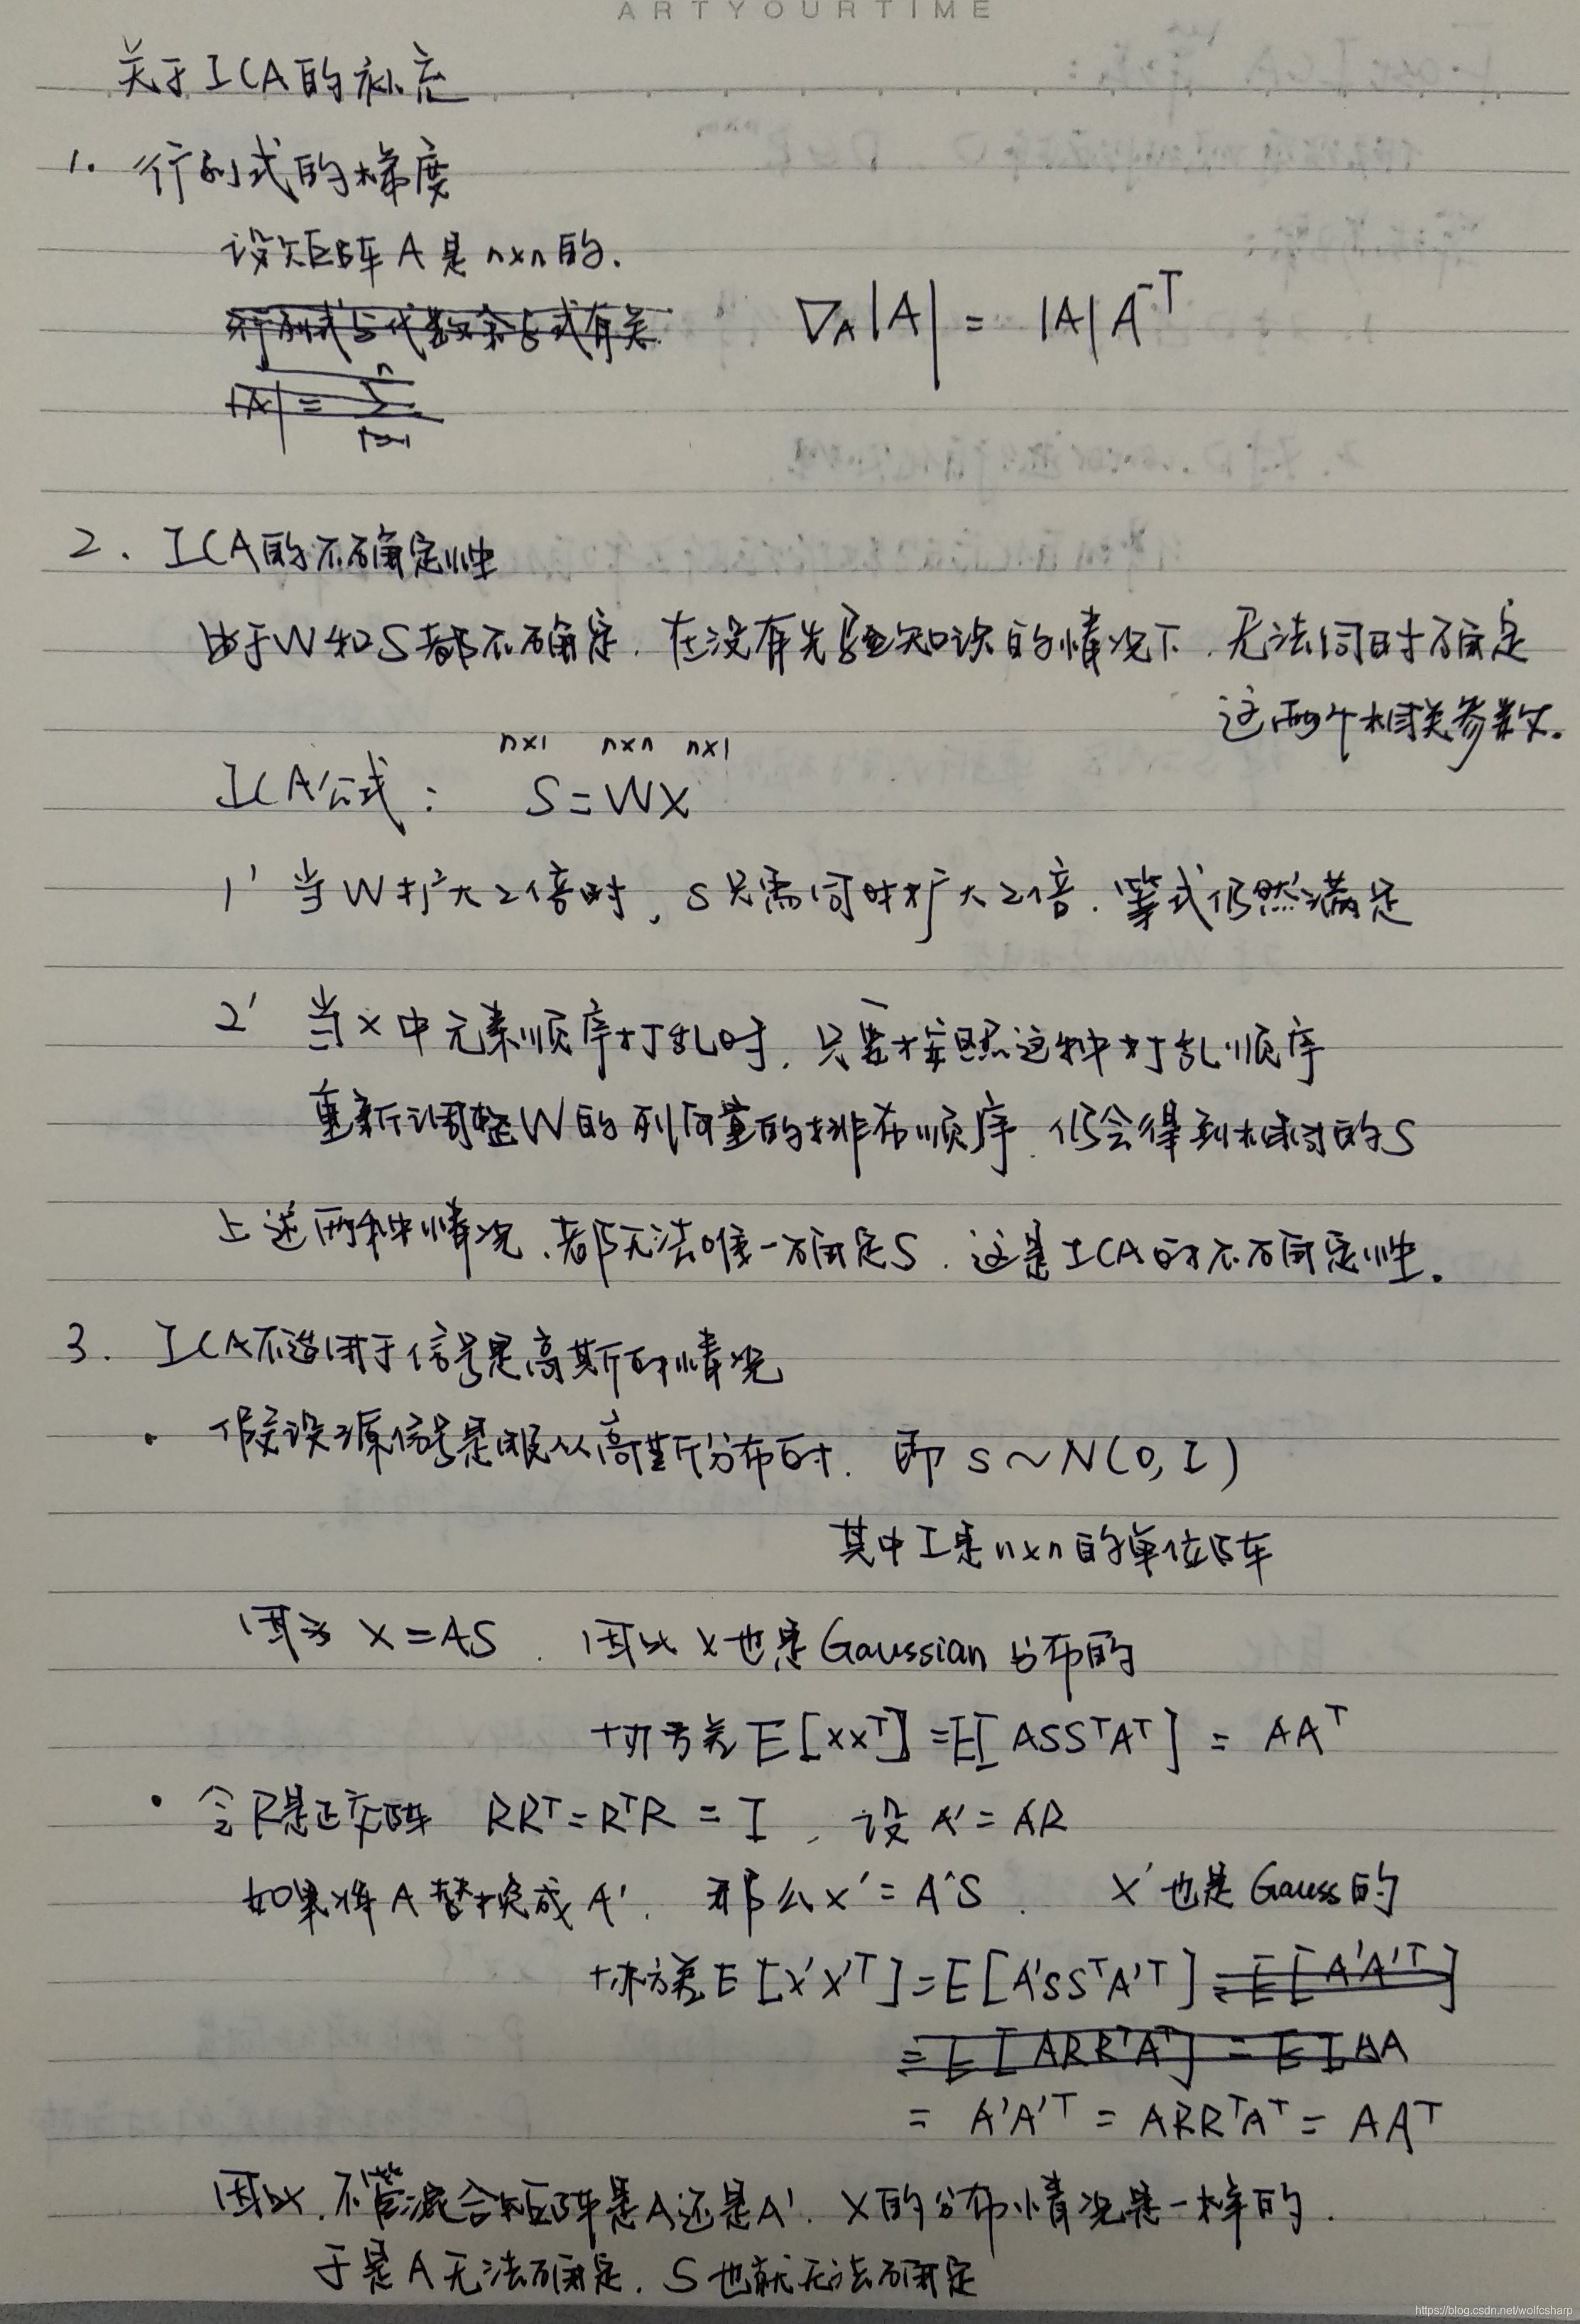 ARTYOURTIME
关于ICA的补充
1. 行列式的梯度
设矩阵A是n×n的.
行列式与代数余子式有关
∇_A|A| = |A| A^{-T}
|A| = Σ_{i=1}^{n}
2. ICA的不确定性
由于W和S都不确定, 在没有先验知识的情况下, 无法同时确定
这两个相关参数.
n×1 n×n n×1
ICA公式: S=WX
1' 当W扩大2倍时, S只需同时扩大2倍, 等式仍然满足
2' 当X中元素顺序打乱时, 只要按照这种打乱顺序
重新调整W的列向量的排布顺序, 仍会得到相同的S
上述两种情况, 都无法唯一确定S, 这是ICA的不确定性.
3. ICA不适用于信号是高斯的情况
· 假设源信号是服从高斯分布时, 即 S~N(0, I)
其中I是n×n的单位阵
因为 X=AS, 因此X也是Gaussian分布的
协方差 E[XX^T] = E[ASS^TA^T] = AA^T
· 令R是正交阵 RR^T=R^TR = I, 设 A'= AR
如果将A替换成A', 那么X'= A'S. X'也是Gauss的
协方差 E[X'X'^T] = E[A'SS^TA'^T] = E[A'A'^T]
= E[ARR^TA^T] = E[AA
= A'A'^T = ARR^TA^T = AA^T
因此, 不管混合矩阵是A还是A', X的分布情况是一样的.
于是A无法确定, S也就无法确定
https://blog.csdn.net/wolfcsharp